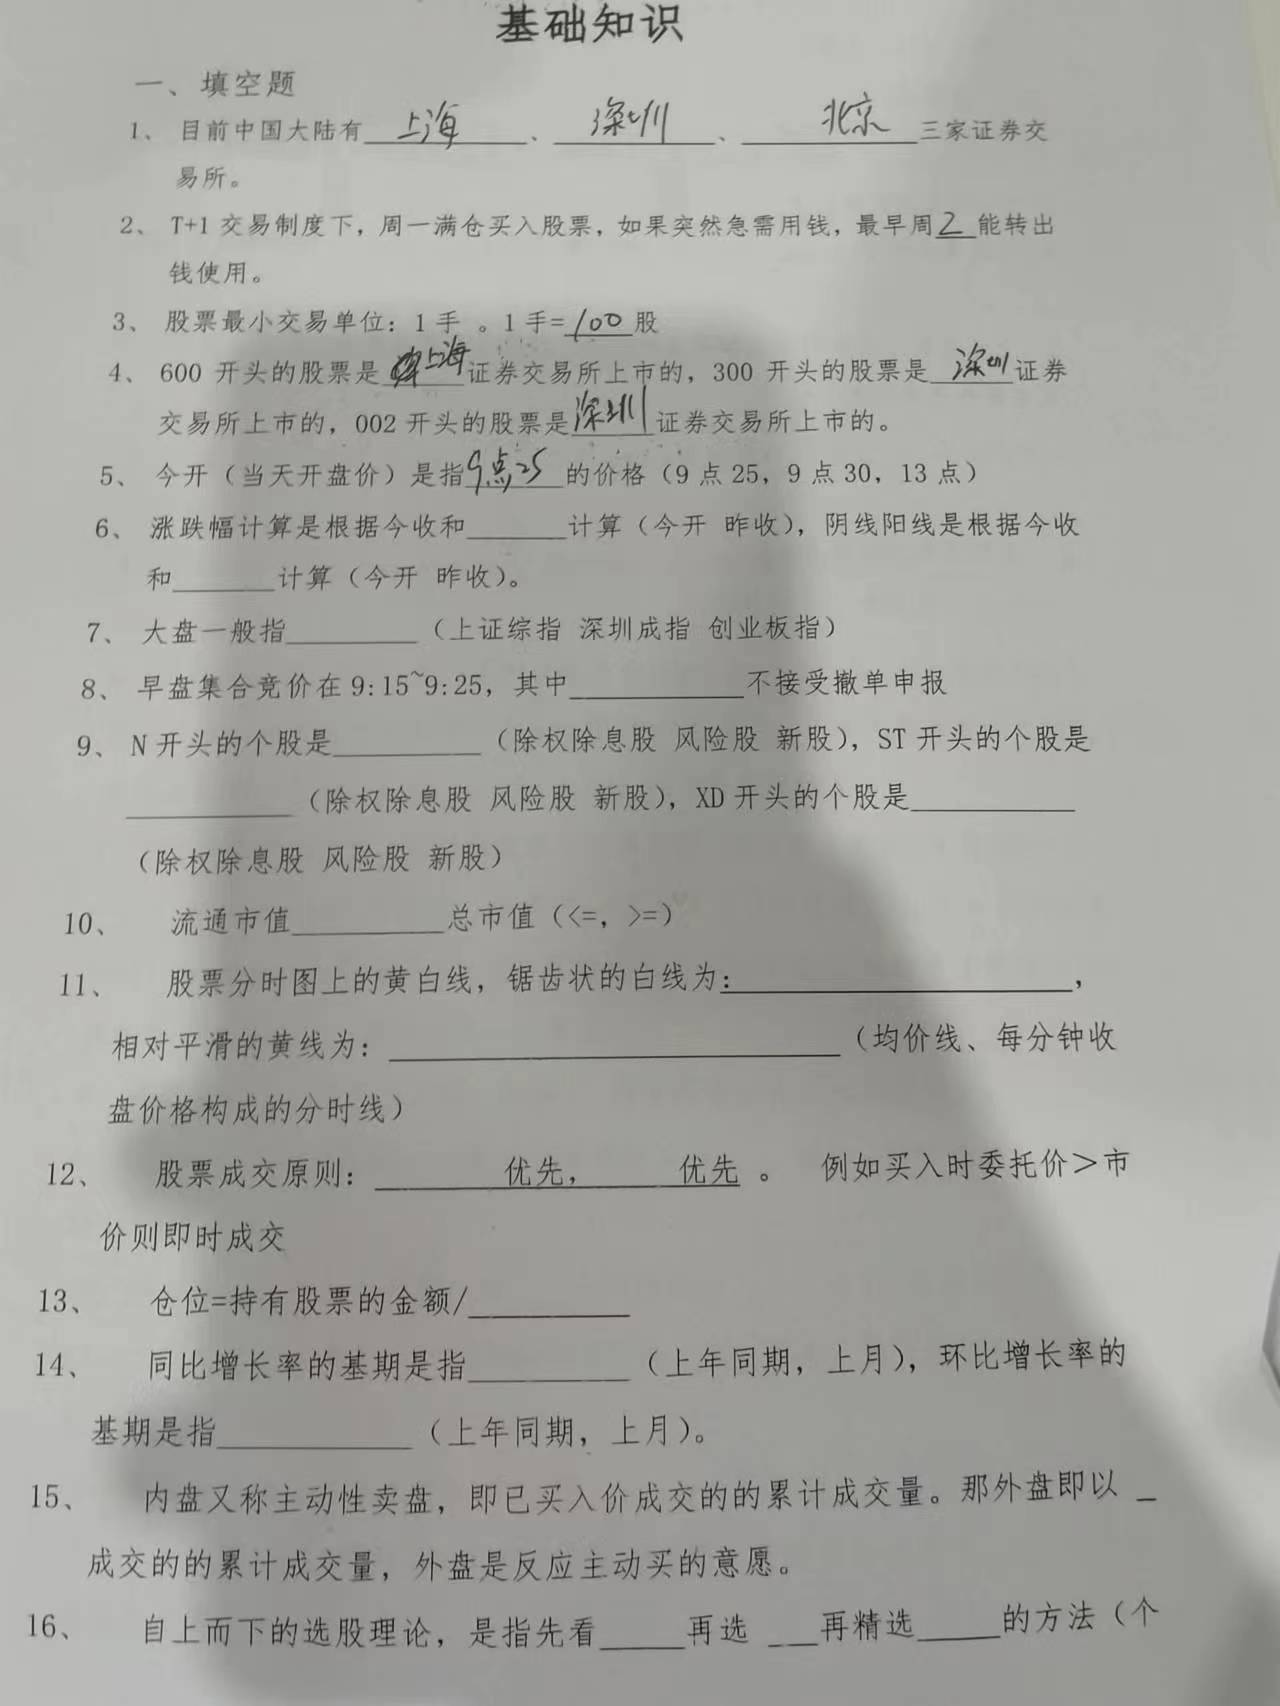 基础知识
一、填空题
1、目前中国大陆有 上海 、 深圳 、 北京 三家证券交
易所。
2、T+1 交易制度下，周一满仓买入股票，如果突然急需用钱，最早周 2 能转出
钱使用。
3、股票最小交易单位：1 手 。1 手= 100 股
4、600 开头的股票是 上海 证券交易所上市的，300 开头的股票是 深圳 证券
交易所上市的，002 开头的股票是 深圳 证券交易所上市的。
5、今开（当天开盘价）是指 9点25 的价格（9 点 25，9 点 30，13 点）
6、涨跌幅计算是根据今收和______计算（今开 昨收），阴线阳线是根据今收
和______计算（今开 昨收）。
7、大盘一般指________（上证综指 深圳成指 创业板指）
8、早盘集合竞价在 9:15~9:25，其中__________不接受撤单申报
9、N 开头的个股是_________（除权除息股 风险股 新股），ST 开头的个股是
__________（除权除息股 风险股 新股），XD 开头的个股是__________
（除权除息股 风险股 新股）
10、流通市值_________总市值（<=，>=）
11、股票分时图上的黄白线，锯齿状的白线为：____________________，
相对平滑的黄线为：__________________________（均价线、每分钟收
盘价格构成的分时线）
12、股票成交原则：________优先，______优先 。 例如买入时委托价＞市
价则即时成交
13、仓位=持有股票的金额/__________
14、同比增长率的基期是指__________（上年同期，上月），环比增长率的
基期是指____________（上年同期，上月）。
15、内盘又称主动性卖盘，即已买入价成交的的累计成交量。那外盘即以 _
成交的的累计成交量，外盘是反应主动买的意愿。
16、自上而下的选股理论，是指先看_____再选 ___再精选_____的方法（个